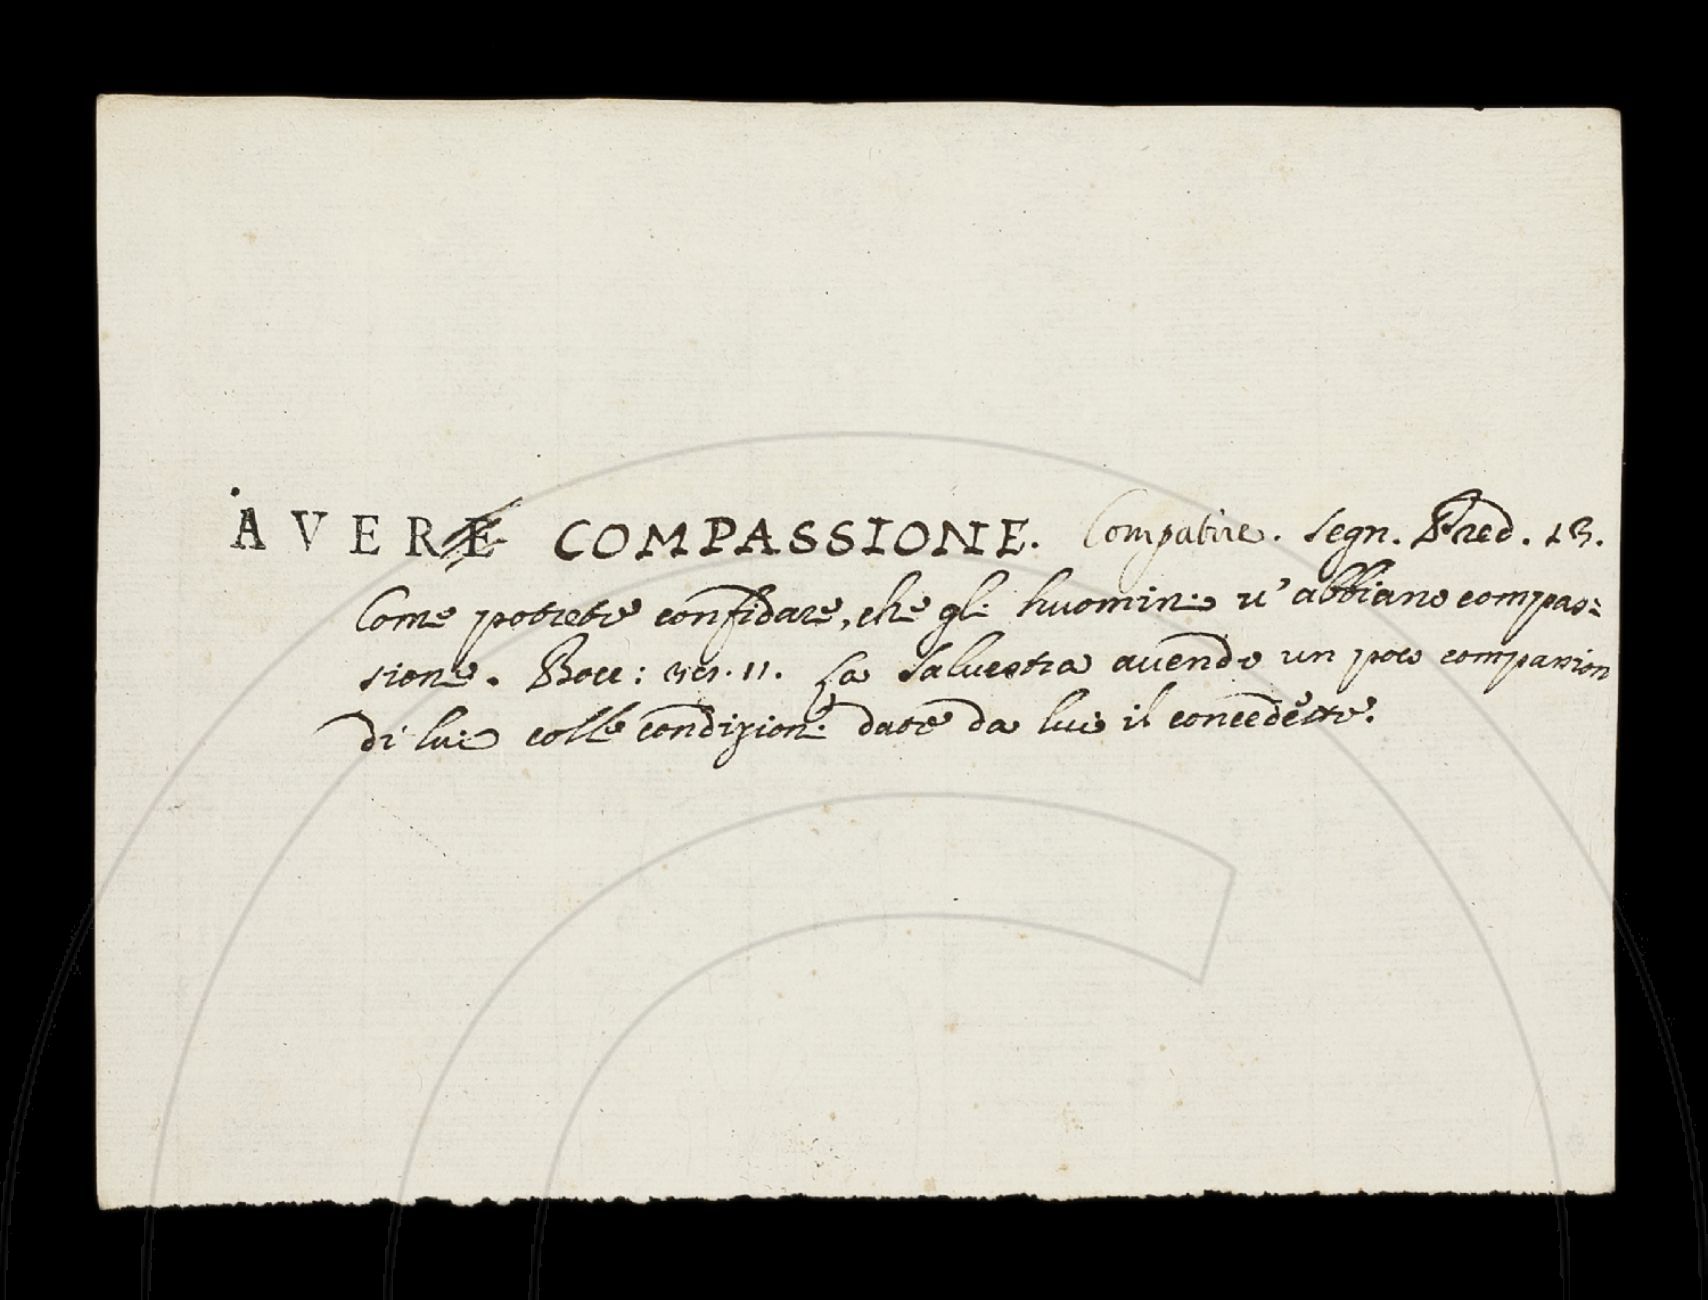 AVERE COMPASSIONE. Compatire. Segn. Pred. 13.
Come potrete confidare, che gli huomini v'abbiano compas=
sione. Bocc: 38. 11. La Salvestra avendo un poco compassion
di lui colle condizioni date da lui il concedette.